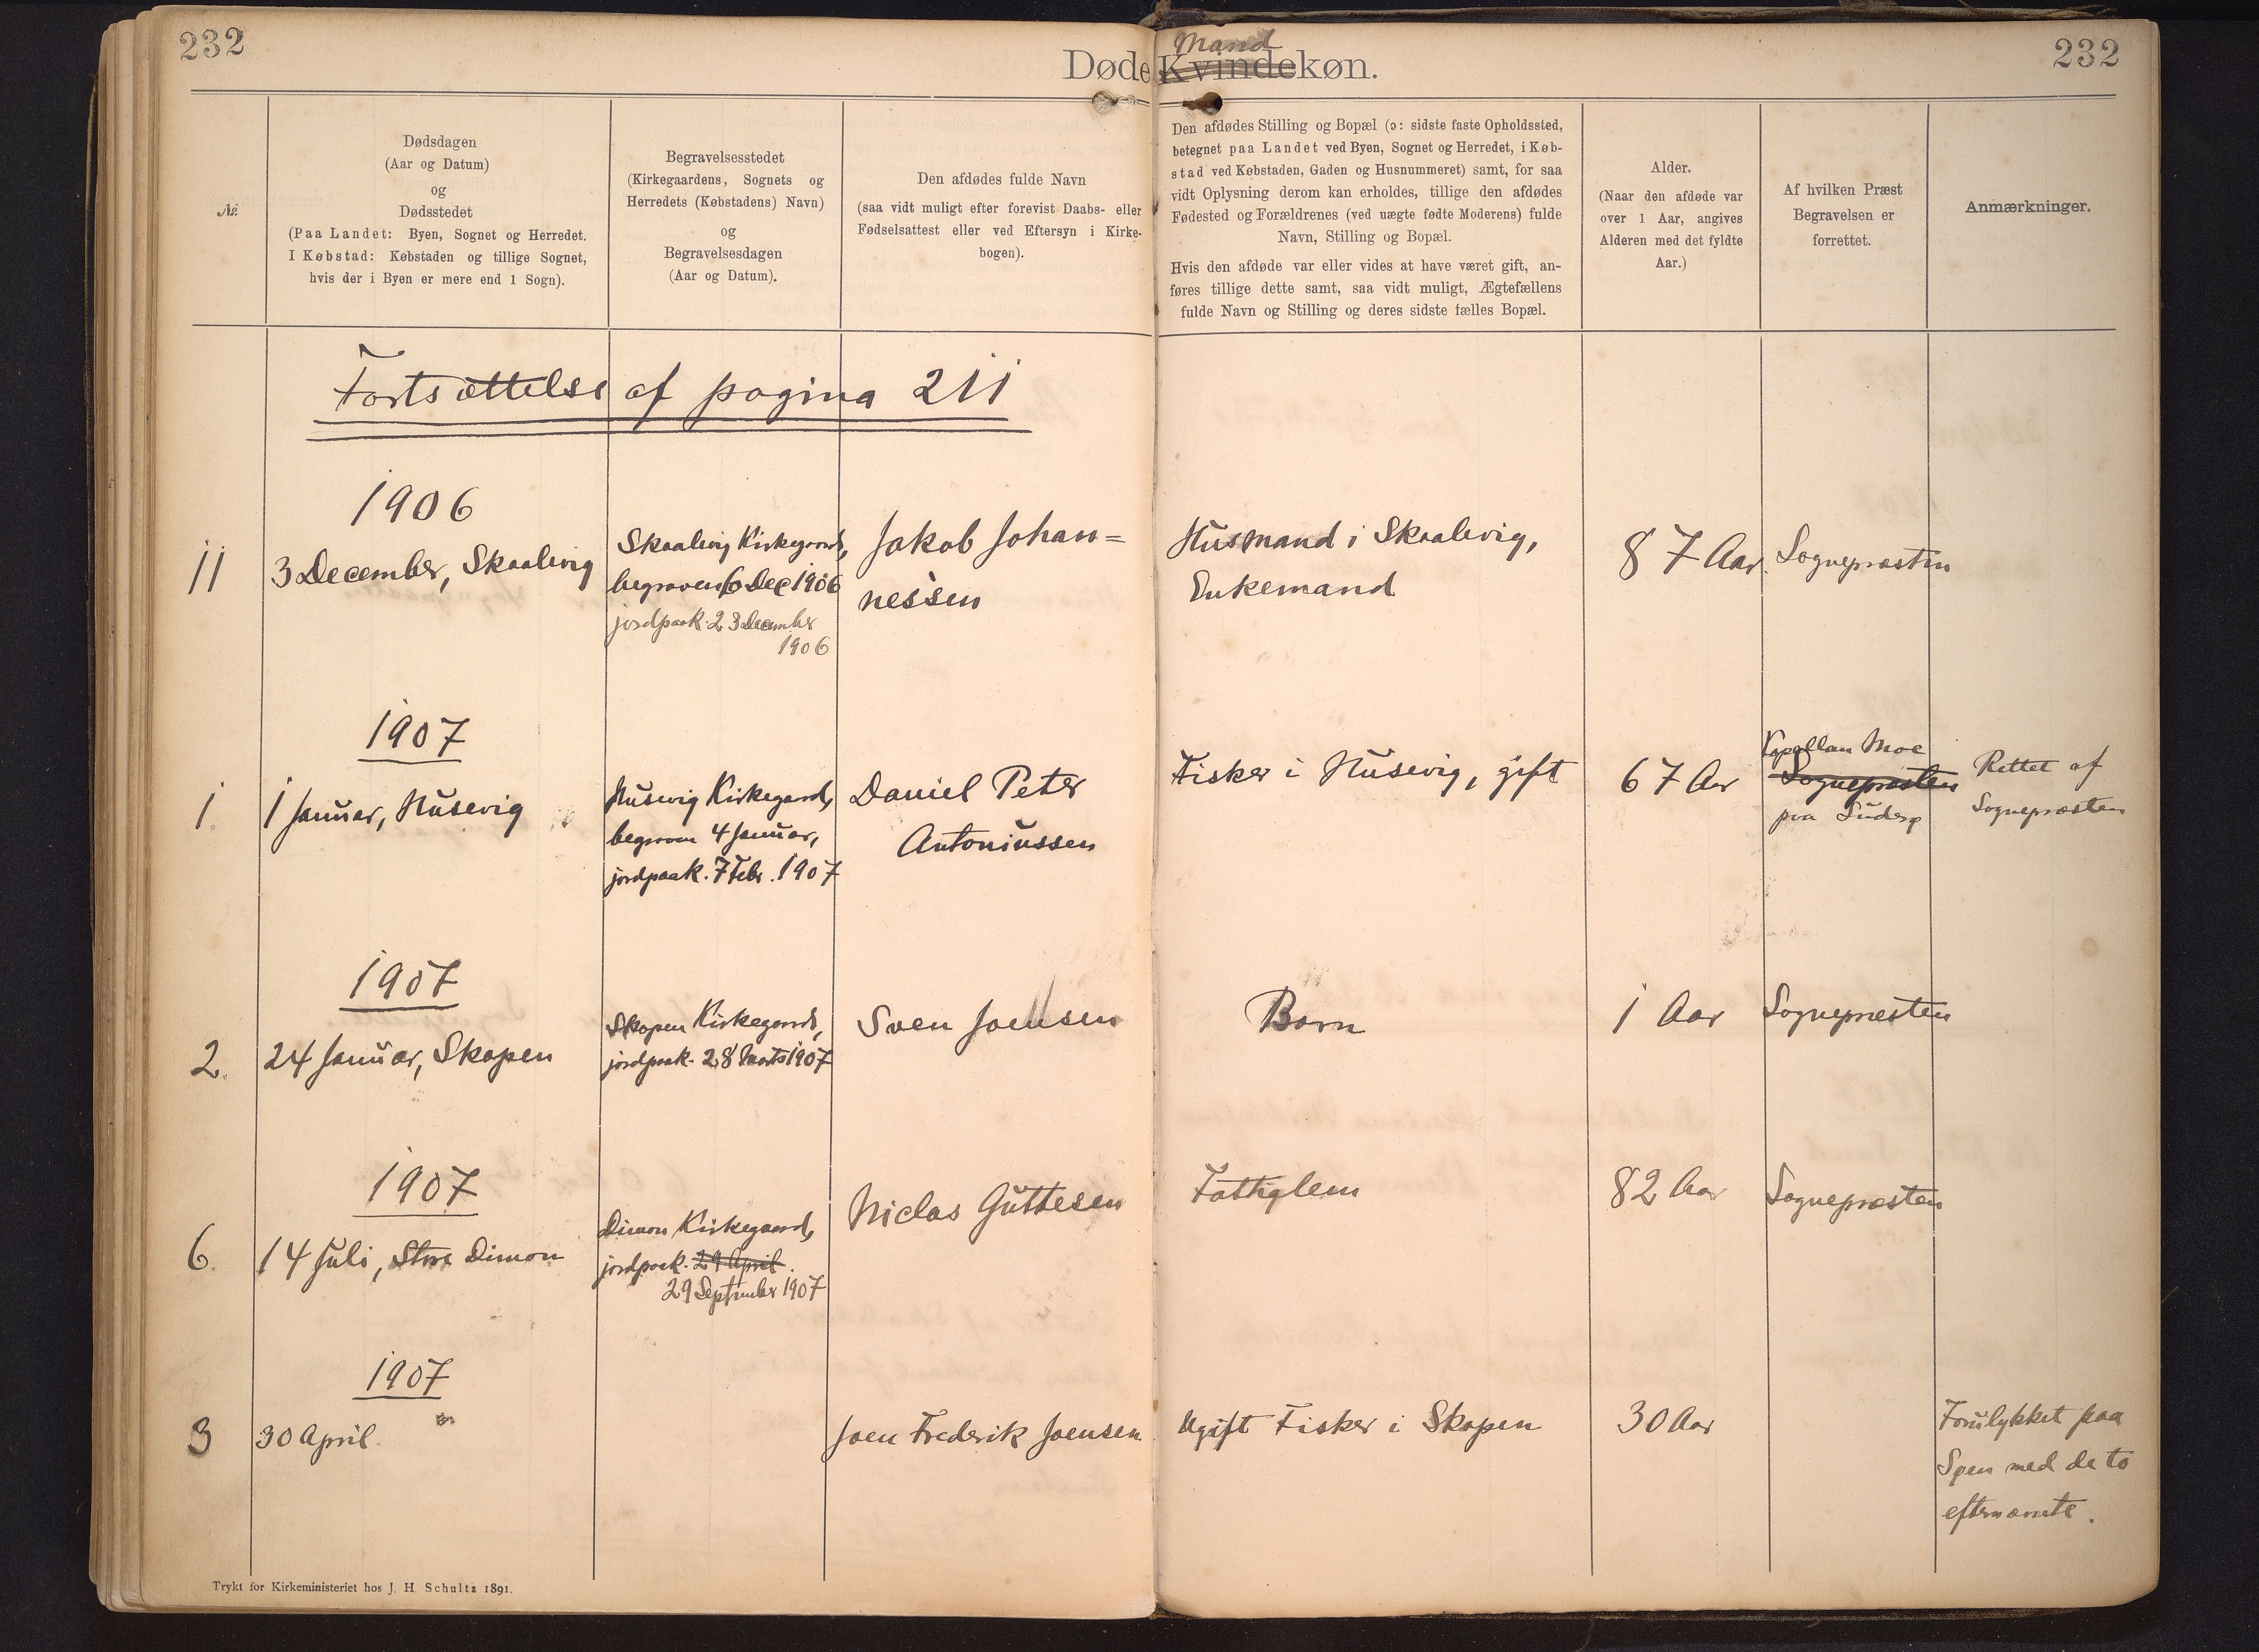 232
232
Mand
Døde Kvindekøn.
№
Dødsdagen
(Aar og Datum)
og
Dødsstedet
(Paa Landet: Byen, Sognet og Herredet.
I Købstad: Købstaden og tillige Sognet,
hvis der i Byen er mere end 1 Sogn).
Begravelsesstedet
(Kirkegaardens, Sognets og
Herredets (Købstadens) Navn)
og
Begravelsesdagen
(Aar og Datum).
Den afdødes fulde Navn
(saa vidt muligt efter forevist Daabs- eller
Fødselsattest eller ved Eftersyn i Kirke-
bogen).
Den afdødes Stilling og Bopæl (ɔ: sidste faste Opholdssted,
betegnet paa Landet ved Byen, Sognet og Herredet, i Køb-
stad ved Købstaden, Gaden og Husnummeret) samt, for saa
vidt Oplysning derom kan erholdes, tillige den afdødes
Fødested og Forældrenes (ved uægte fødte Moderens) fulde
Navn, Stilling og Bopæl.
Hvis den afdøde var eller vides at have været gift, an-
føres tillige dette samt, saa vidt muligt, Ægtefællens
fulde Navn og Stilling og deres sidste fælles Bopæl.
Alder.
(Naar den afdøde var
over 1 Aar, angives
Alderen med det fyldte
Aar.)
Af hvilken Præst
Begravelsen er
forrettet.
Anmærkninger.
Fortsættelse af pagina 211
1906
11
3 December, Skaalevig
Skaalevig Kirkegaard,
begraven 6 Dec 1906
jordpaak. 23 December
1906
Jakob Johan=
nessen
Husmand i Skaalevig,
Enkemand
87 Aar
Sognepræsten
1907
1.
1 Januar, Husevig
Husevig Kirkegaard,
begraven 4 Januar,
jordpaak. 7 Febr. 1907
Daniel Peter
Antoniussen
Fisker i Husevig, gift
67 Aar
Kapellan Moe
Sognepræsten
paa Suderø
Rettet af
Sognepræsten
1907
2.
24 Januar, Skopen
Skopen Kirkegaard,
jordpaak. 28 Marts 1907
Sven Joensen
Barn
1 Aar
Sognepræsten
1907
6.
14 Juli, Store Dimon
Dimon Kirkegaard,
jordpaak. 29 April.
29 September 1907
Niclas Guttesen
Fattiglem
82 Aar
Sognepræsten
1907
3
30 April.
Joen Frederik Joensen
Ugift Fisker i Skopen
30 Aar
Forulykket paa
Søen med de to
efternævnte.
Trykt for Kirkeministeriet hos J. H. Schultz 1891.